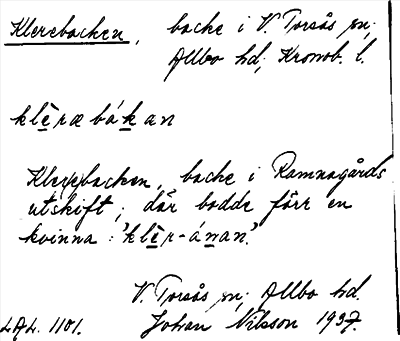 Klerebacken, backe i V. Torsås sn;
Allbo hd; Kronob. l.
klèræbákan
Klerebacken, backe i Ramnagårds
utskift; där bodde förr en
kvinna: 'klèr-ánan'.
V. Torsås sn; Allbo hd.
LAL. 1101. Johan Nilsson 1937.